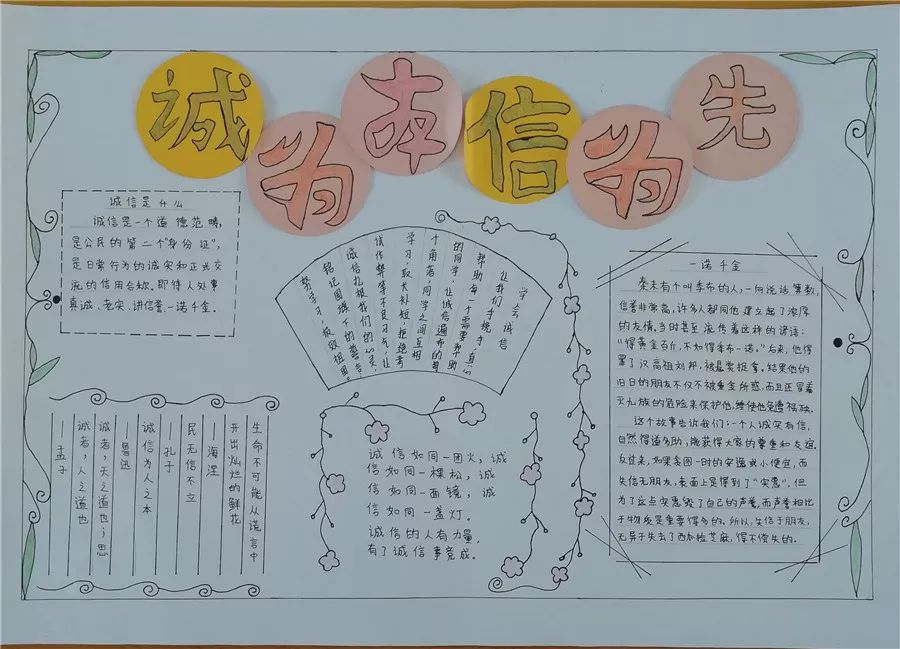 诚为本信为先
诚信是什么
诚信是一个道德范畴,
是公民的第二个"身份证",
是日常行为的诚实和正式交
流的信用合称。即待人处事
真诚、老实、讲信誉、一诺千金。
让我们学会诚信
让我们手挽手,真心
帮助每一个需要帮助
的同学,让诚信遍布的每
个角落,同学之间互相
学习,取长补短,拒绝考
试作弊等不良习气,让
诚信扎根我们的心灵,
铭记国旗下的誓言
努力学习,报效祖国。
一诺千金
秦末有个叫季布的人,一向说话算数,
信誉非常高,许多人都同他建立起了浓厚
的友情。当时甚至流传着这样的谚语:
"得黄金百斤,不如得季布一诺。"后来,他得
罪了汉高祖刘邦,被悬赏捉拿。结果他的
旧日的朋友不仅不被重金所惑,而且还冒着
灭九族的危险来保护他,终使他免遭祸殃。
这个故事告诉我们:一个人诚实有信,
自然得道多助,能获得大家的尊重和友谊。
反过来,如果贪图一时的安逸或小便宜,而
失信于朋友,表面上是得到了"实惠"。但
为了这点实惠毁了自己的声誉,而声誉相比
于物质是重要得多的。所以,失信于朋友,
无异于失去了西瓜捡芝麻,得不偿失的。
生命不可能从谎言中
开出灿烂的鲜花
——海涅
民无信不立
——孔子
诚信为人之本
——鲁迅
诚者,天之道也;思
诚者,人之道也
——孟子
诚信如同一团火,诚
信如同一棵松,诚
信如同一面镜,诚
信如同一盏灯。
诚信的人有力量,
有了诚信事竟成。